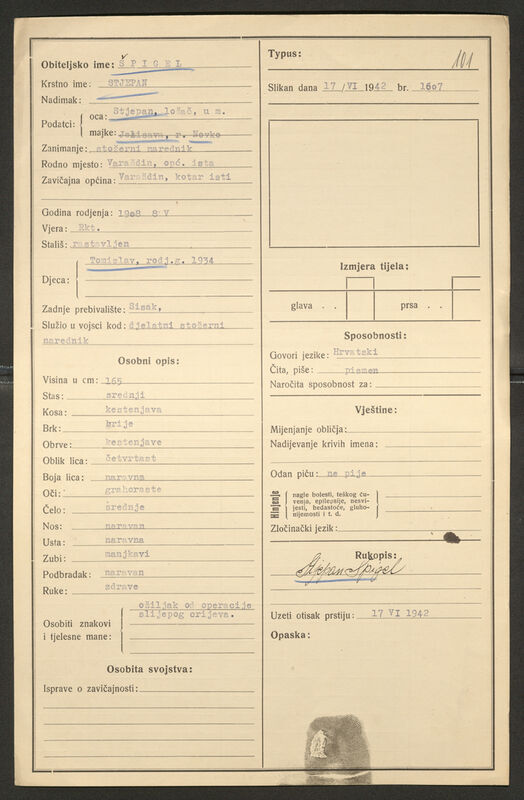 Obiteljsko ime: ŠPIGEL
Krstno ime: STJEPAN
Nadimak:
Podatci:
oca: Stjepan, ložač, u m.
majke: Jelisava, r. Novko
Zanimanje: stožerni narednik
Rodno mjesto: Varaždin, opć. ista
Zavičajna općina: Varaždin, kotar isti
Godina rodjenja: 1908 8 V
Vjera: Rkt.
Stališ: rastavljen
Djeca:
Tomislav, rodj.g. 1934
Zadnje prebivalište: Sisak,
Služio u vojsci kod: djelatni stožerni
narednik
Osobni opis:
Visina u cm: 165
Stas: srednji
Kosa: kestenjava
Brk: brije
Obrve: kestenjave
Oblik lica: četvrtast
Boja lica: naravna
Oči: grahoraste
Čelo: srednje
Nos: naravan
Usta: naravna
Zubi: manjkavi
Podbradak: naravan
Ruke: zdrave
Osobiti znakovi
i tjelesne mane:
ožiljak od operacije
slijepog crijeva.
Osobita svojstva:
Isprave o zavičajnosti:
Typus:
101
Slikan dana 17 / VI 1942 br. 1607
Izmjera tijela:
glava . . prsa . .
Sposobnosti:
Govori jezike: Hrvatski
Čita, piše: pismen
Naročita sposobnost za:
Vještine:
Mijenjanje obličja:
Nadijevanje krivih imena:
Odan piću: ne pije
Hinjenje
nagle bolesti, teškog ču-
venja, epilepsije, nesvi-
jesti, bedastoće, gluho-
nijemosti i t. d.
Zločinački jezik:
Rukopis:
Stjepan Špigel
Uzeti otisak prstiju: 17 VI 1942
Opaska: